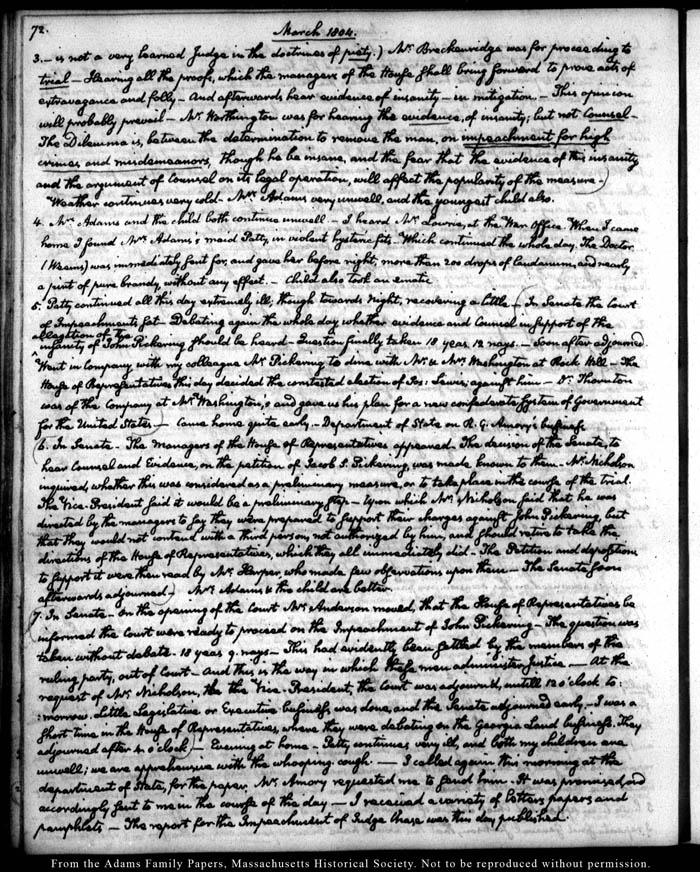 72.
March 1804.
3.— is not a very learned Judge in the doctrines of piety.) Mr. Breckenridge was for proceeding to
trial — Hearing all the proofs, which the managers of the House shall bring forward to prove acts of
extravagance and folly — And afterwards hear evidence of insanity — in mitigation — This opinion
will probably prevail — Mr. Worthington was for hearing the evidence, of insanity; but not Counsel —
The Dilemma is, between the determination to remove the man, on impeachment for high
crimes, and misdemeanors, though he be insane, and the fear that the evidence of this insanity
and the argument of Counsel on its legal operation, will affect the popularity of the measure —)
Weather continues very cold — Mrs. Adams very unwell, and the youngest child also.
4. Mrs. Adams and the child both continue unwell — I heard Mr. Lowrie, at the War Office. When I came
home I found Mrs. Adams's maid Patty, in violent hysteric fits. Which continued the whole day. The Doctor
(Weems) was immediately sent for, and gave her before night, more than 200 drops of laudanum, and nearly
a pint of pure brandy, without any effect. — Child also took an emetic
5. Patty continued all this day extremely ill; though towards Night, recovering a little — (In Senate the Court
of Impeachments sat — Debating again the whole day whether evidence and Counsel in support of the
allegation of the
insanity of John Pickering should be heard — Question finally taken 18 yeas. 12 nays. — Soon after adjourned.
Went in company with my colleague Mr. Pickering to dine with Mr. & Mrs. Washington at Rock Hill — The
House of Representatives this day decided the contested election of Jos: Lewis, against him — Dr. Thornton
was of the Company at Mr. Washington's and gave us his plan for a new confederate system of Government
for the United States — Came home quite early. — Department of State on R. G. Amory's business
(6. In Senate — The managers of the House of Representatives appeared. The decision of the Senate, to
hear Counsel and Evidence, on the petition of Jacob S. Pickering, was made known to them — Mr. Nicholson
inquired, whether this was considered as a preliminary measure, or to take place in the course of the trial.
The Vice-President said it would be a preliminary step — Upon which Mr. Nicholson said that he was
directed by the managers to say they were prepared to support their charges against John Pickering, but
that they would not contend with a third person, not authorized by him, and should retire to take the
directions of the House of Representatives, which they all immediately did — The Petition and depositions
to support it were then read by Mr. Harper, who made few observations upon them — The Senate soon
afterwards adjourned —) Mrs. Adams & the child are better.
(7. In Senate — On the opening of the Court Mr. Anderson moved, that the House of Representatives be
informed the Court were ready to proceed on the Impeachment of John Pickering — The question was
taken without debate. 18 yeas 9. nays — This had evidently been settled by the members of the
ruling party, out of Court — And this is the way in which these men administer justice — At the
request of Mr. Nicholson, the the Vice-President, the Court was adjourn'd, untill 12 o'clock to:
:morrow. Little Legislative or Executive business, was done, and the Senate adjourned early. — I was a
short time in the House of Representatives, where they were debating on the Georgia Land business. They
adjourned after 4 o'clock) — Evening at home — Patty continues very ill, and both my children are
unwell; we are apprehensive with the whooping cough. — I called again this morning at the
department of State, for the paper Mr. Amory requested me to send him. It was promised, and
accordingly sent to me in the course of the day — I received a variety of letters papers and
pamphlets — The report for the Impeachment of Judge Chase was this day published.
From the Adams Family Papers, Massachusetts Historical Society. Not to be reproduced without permission.